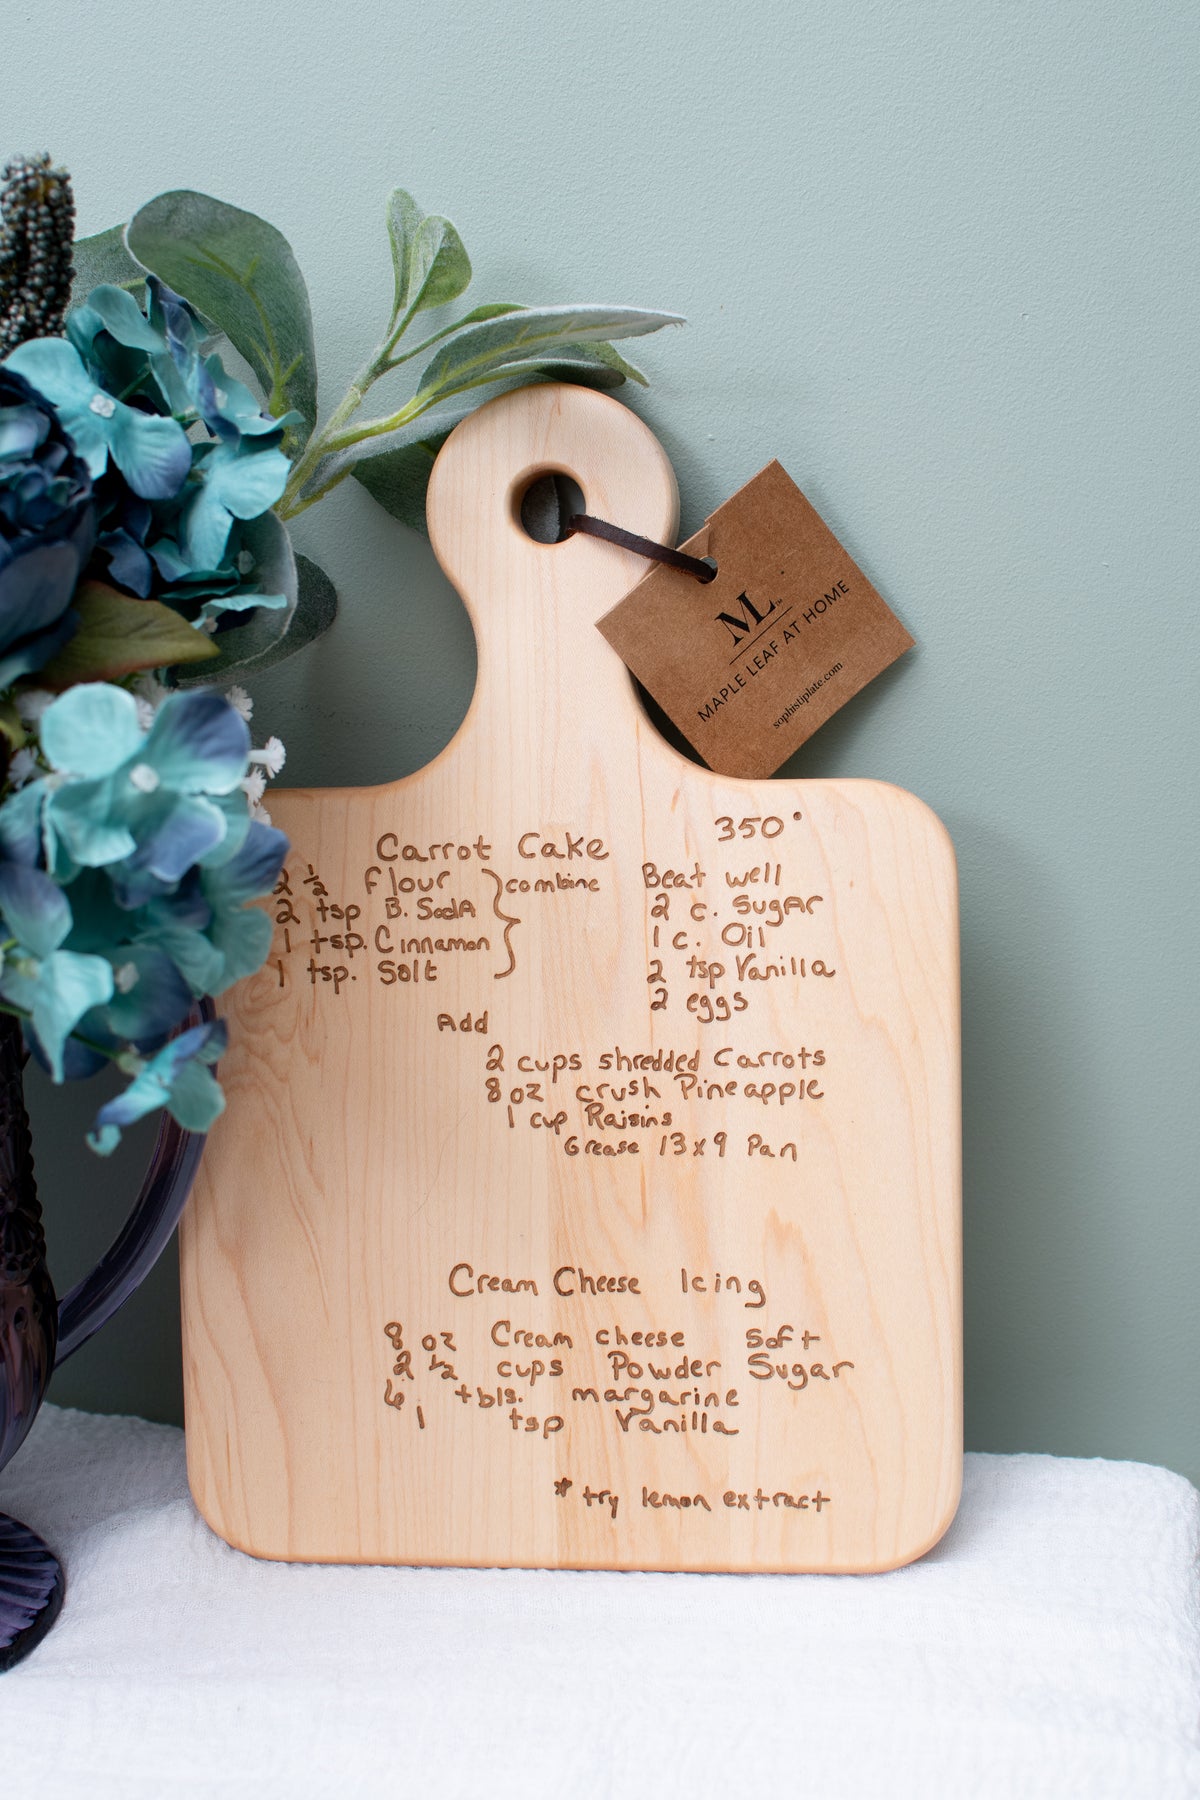 ML
MAPLE LEAF AT HOME
sophistiplate.com
350°
Carrot Cake
2 ½ flour } combine
2 tsp B. SodA
1 tsp. Cinnamon
1 tsp. Salt
Beat well
2 c. SugAr
1 c. Oil
2 tsp Vanilla
2 eggs
Add
2 cups shredded Carrots
8 oz crush Pineapple
1 cup Raisins
Grease 13x9 Pan
Cream Cheese Icing
8 oz Cream cheese soft
2 ½ cups Powder Sugar
6 tbls. margarine
1 tsp Vanilla
* try lemon extract